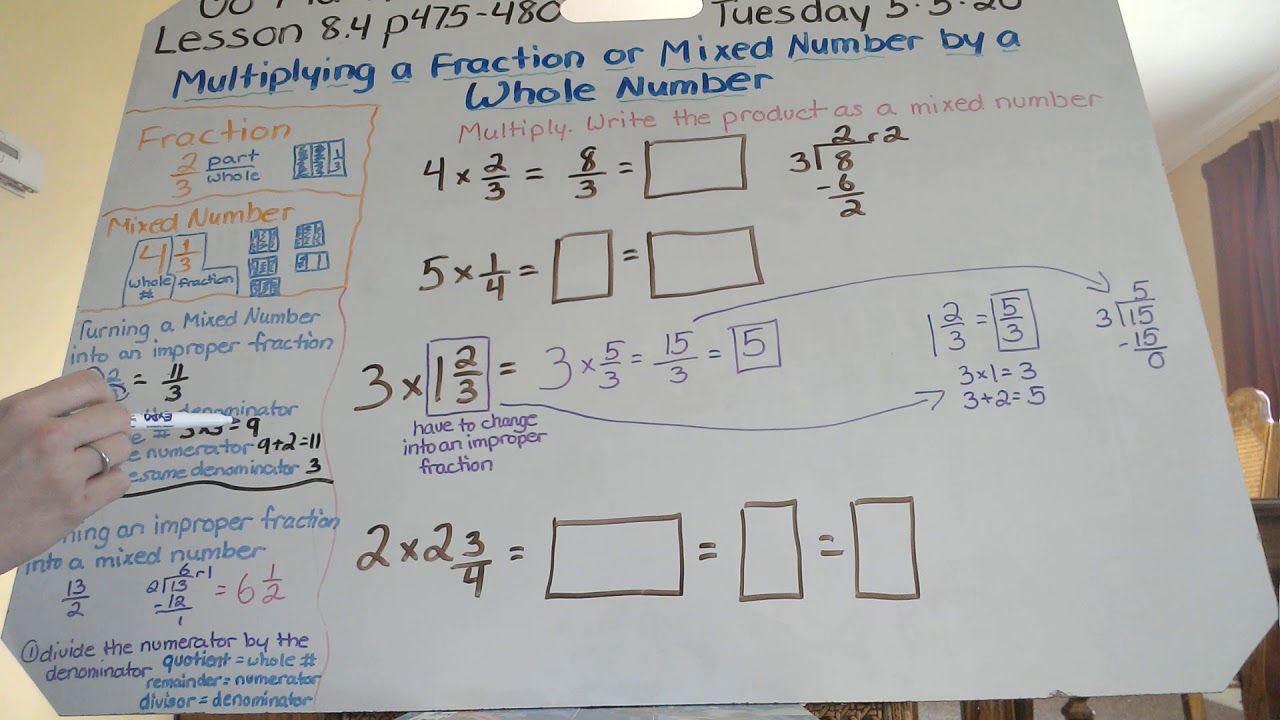 Lesson 8.4 p475-480
Tuesday 5.5.20
Multiplying a Fraction or Mixed Number by a
Whole Number
Fraction
2/3 part/whole
1/3
Mixed Number
4 1/3
whole # fraction
Turning a Mixed Number
into an improper fraction
= 11/3
denominator
3x3=9
numerator 9+2=11
same denominator 3
an improper fraction
into a mixed number
13/2
6 r1
2)13
-12
1
= 6 1/2
① divide the numerator by the
denominator quotient = whole #
remainder = numerator
divisor = denominator
Multiply. Write the product as a mixed number
4 × 2/3 = 8/3 =
2 r2
3)8
-6
2
5 × 1/4 = =
3 × 1 2/3 = 3 × 5/3 = 15/3 = 5
have to change
into an improper
fraction
1 2/3 = 5/3
3×1=3
3+2=5
5
3)15
-15
0
2 × 2 3/4 = = =